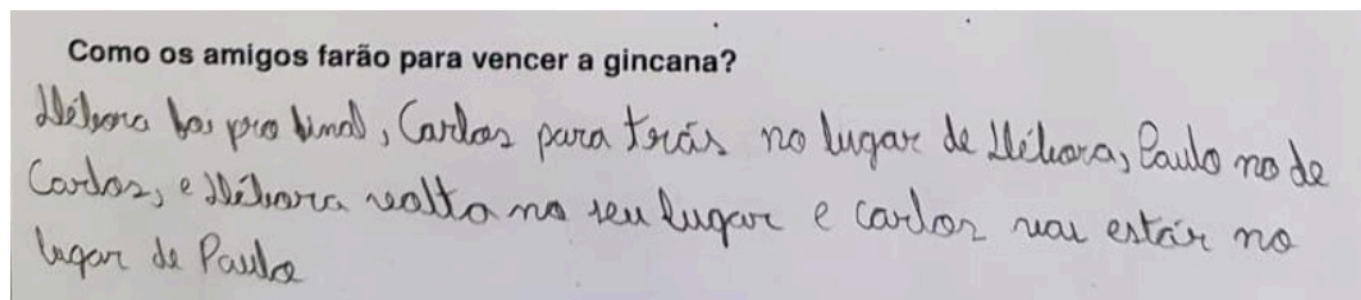 Como os amigos farão para vencer a gincana?
Débora vai pro final, Carlos para trás no lugar de Débora, Paulo no de
Carlos, e Débora volta no seu lugar e carlos vai estár no
lugar de Paulo